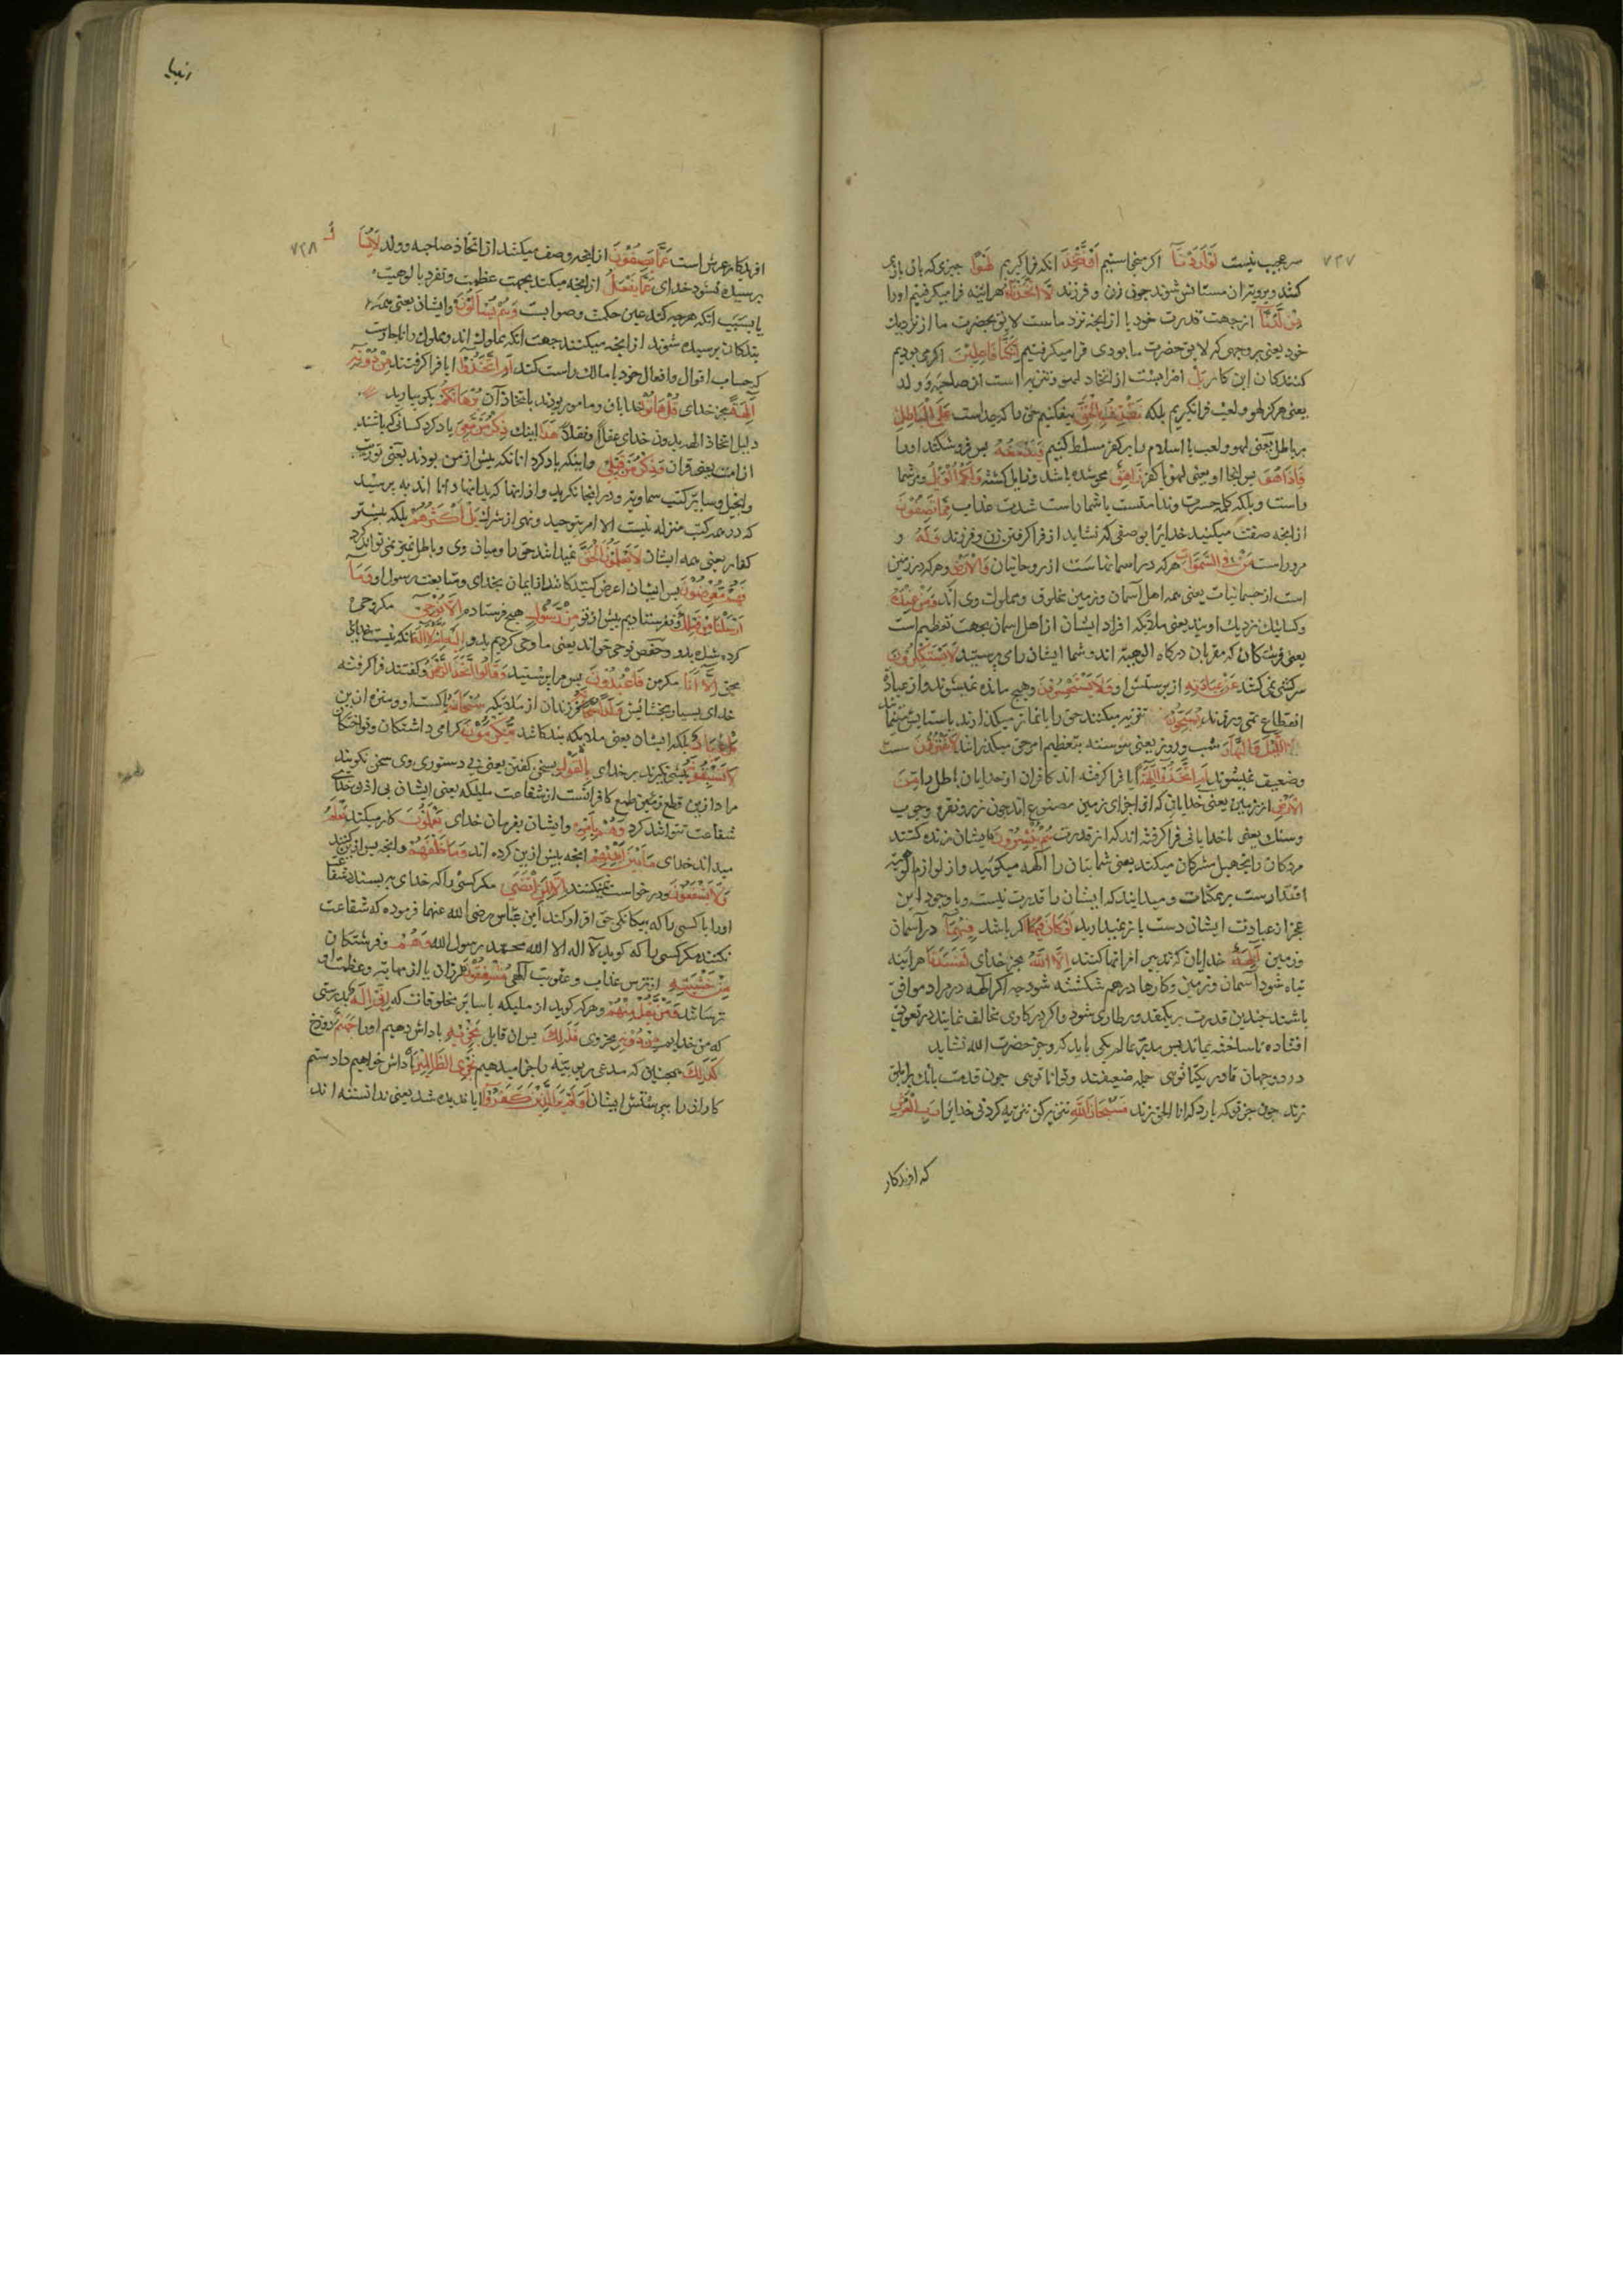 ۷۲۷
سر عجب نیست لَوْ اَرَدْنَآ اکر میخواستیم اَنْ نَتَّخِذَ انکه فراکیریم لَهْوًا جیزی که بان بازی
کنند وبرویتران مستانس شوند جون زن و فرزند لَاتَّخَذْنَاهُ هراینه فرامیکرفتیم اورا
مِنْ لَدُنَّآ ازجهت قدرت خود یا ازانجه نزد ماست لایق بحضرت ما از نزدیك
خود یعنی بروجهی که لایق حضرت ما بودی فرامیکرفتیم اِنْ كُنَّا فَاعِلِینَ اکر می بودیم
کنندکان این کار بَلْ اضرابست از اتخاذ لهو وتنزیه است از صاحبه و ولد
یعنی هرکز لهو ولعب فرانکیریم بلکه نَقْذِفُ بِالْحَقِّ میفکنیم حق را که جداست عَلَی الْبَاطِلِ
برباطل یعنی لهو ولعب یا اسلام را برکفر مسلط کنیم فَیَدْمَغُهُ پس فروشکند اورا
فَاِذَا هُوَ پس انجا او یعنی لهو یا کفر زَاهِقٌ محو شده باشد وزایل کشته وَلَكُمُ الْوَیْلُ ومرشما
راست ویلکه کلمه حسرت وندامتست یا شماراست شدت عذاب مِمَّا تَصِفُوْنَ
ازانجه صفت میکنید خدایرا بوصفی که نشاید از فراکرفتن زن وفرزند وَلَهُ و
مروراست مَنْ فِی السَّمٰوَاتِ هرکه در اسمانهاست از روحانیان وَالْاَرْضِ وهرکه در زمین
است از جسمانیات یعنی همه اهل آسمان وزمین مخلوق ومملوك وی اند وَمَنْ عِنْدَهُ
وکسانیکه نزدیك اویند یعنی ملائکه افراد ایشان از اهل اسمان بجهت تعظیم است
یعنی فرشتکان که مقربان درکاه الوهیتند اند وشما ایشان را می پرستید لَا یَسْتَكْبِرُوْنَ
سرکشی نمی کنند عَنْ عِبَادَتِهِ ازپرستش او وَلَا یَسْتَحْسِرُوْنَ وهیچ مانده نمیشوند واز عبادة
انقطاع نمی ورزند یُسَبِّحُوْنَ تنزیه میکنند حق را یا نماز میکذارند یا ستایش مینمایند
اللَّیْلَ وَالنَّهَارَ شب وروز یعنی پیوسته بتعظیم امر حق میکذرانند لَا یَفْتُرُوْنَ سست
وضعیف نمیشوند اَمِ اتَّخَذُوْا اٰلِهَةً ایا فراکرفته اند کافران از خدایان باطل را مِنَ
الْاَرْضِ از زمین یعنی خدایانی که از اجزای زمین مصنوع اند جون زر ونقره وجوب
وسنك یعنی باخدایانی فراکرفته اند که از قدرت هُمْ یُنْشِرُوْنَ ایشان زنده کنند
مردکان را تجهیل مشرکان میکند یعنی شما بتان را آلهه میکوئید واز لوازم الوهیة
اقتدارست برممکنات ومیدانید که ایشان را قدرت نیست وباوجود این
عجز از عبادت ایشان دست باز نمیدارید لَوْ كَانَ فِیْهِمَا اکر باشد فِیْهِمَآ در آسمان
وزمین اٰلِهَةٌ خدایان که تدبیر امر انها کنند اِلَّا اللهُ بجز خدای لَفَسَدَتَا هراینه
تباه شود آسمان وزمین وکارها درهم شکسته شود جه اکر الهه در مراد موافق
باشند جندین قدرت بریکقدور طاری شود واکر در کاری مخالف نمایند در تعویق
افتاده ناساخته بماند پس مدبر عالم یکی باید که وجز حضرت الله نشاید
در دو جهان قادر یکتا توئی جمله ضعیفند وتوانا توئی جون قدمت بانك برابلق
زند جون جز تو که یارد که انا الحق زند فَسُبْحَانَ اللهِ تنزیه کن تنزیه کردنی خدایرا رَبِّ الْعَرْشِ
که افریدکار
انبیا
۷۲۸
افریدکار عرش است عَمَّا یَصِفُوْنَ از انجه وصف میکنند از اتخاذ صاحبه وولد لَا یُسْئَلُ
پرسیده نشود خدای عَمَّا یَفْعَلُ از انجه میکند بجهت عظمت وتفرد بالوهیت
یا بسبب انکه هرجه کند عین حکمت وصوابست وَهُمْ یُسْاَلُوْنَ وایشان یعنی همه
بندکان پرسیده شوند از انجه میکنند جهت انکه مملوك اند ومملوك را ناجارست
که حساب اقوال وافعال خود با مالك راست کند اَمِ اتَّخَذُوْا ایا فراکرفتند مِنْ دُوْنِهِ
اٰلِهَةً بجز خدای قُلْ هَاتُوْا خدایان ومامور بودند باتخاذ آن بُرْهَانَكُمْ بکو بیارید
دلیل اتخاذ الهه بدون خدای عقلًا ونقلًا هٰذَا اینك ذِكْرُ مَنْ مَعِیَ یاد کرد کسانی که باشند
از امت یعنی قران وَذِكْرُ مَنْ قَبْلِی واینکه یاد کرد انانکه پیش از من بودند یعنی توریت
وانجیل وسایر کتب سماویه ودر انجا نکرید واز انها که بدانها دانا اند به پرسید
که در همه کتب منزله نیست الا امر بتوحید ونهی از شرك بَلْ اَكْثَرُهُمْ بلکه بیشتر
کفار یعنی همه ایشان لَا یَعْلَمُوْنَ الْحَقَّ نمیدانند حق را ومیان وی وباطل تمییز نمی توانند کرد
فَهُمْ مُعْرِضُوْنَ پس ایشان اعراض کنندکانند از ایمان بخدای ومتابعت رسول او وَمَآ
اَرْسَلْنَا مِنْ قَبْلِكَ ونفرستادیم پیش از تو مِنْ رَسُوْلٍ هیچ فرستاده اِلَّا یُوْحٰی مکر وحی
کرده شد بدو وحفص نوحی خواند یعنی ما وحی کردیم بدو اِلَیْهِ اَنَّهُ لَآ اِلٰهَ انکه نیست خدای
بحق اِلَّآ اَنَا مکر من فَاعْبُدُوْنِ پس مرا پرستید وَقَالُوا اتَّخَذَ الرَّحْمٰنُ وکفتند فراکرفته
خدای بسیار بخشایش وَلَدًا فرزندان از ملائکه سُبْحَانَهُ پاکست او ومنزه از این
بَلْ عِبَادٌ بلکه ایشان یعنی ملائکه بندکانند مُكْرَمُوْنَ کرامی داشتکان ونواختکان
لَا یَسْبِقُوْنَهُ پیشی نکیرند بر خدای بِالْقَوْلِ بسخن کفتن یعنی بی دستوری وی سخن نکویند
مراد ازین قطع طمع کافرانست از شفاعت ملیکه یعنی ایشان بی اذن خدای
شفاعت نتوانند کرد وَهُمْ بِاَمْرِهِ وایشان بفرمان خدای یَعْمَلُوْنَ کار میکنند یَعْلَمُ
میداند خدای مَا بَیْنَ اَیْدِیْهِمْ انجه پیش ازین کرده اند وَمَا خَلْفَهُمْ وانجه پس ازین کنند
وَلَا یَشْفَعُوْنَ ودرخواست نمیکنند اِلَّا لِمَنِ ارْتَضٰی مکر کسی را که خدای بپسندد شفاعت
اورا یا کسی را که بیکانکی حق اقرار کند ابن عباس رضی الله عنهما فرموده که شفاعت
نکنند مکر کسی را که کوید لآ اله الا الله محمد رسول الله وَهُمْ وفرشتکان
مِنْ خَشْیَتِهِ از ترس عذاب وعقوبت الهی مُشْفِقُوْنَ لرزان یا از مهابت وعظمت او
ترسانند وَمَنْ یَقُلْ مِنْهُمْ وهرکه کوید از ملیکه یا سایر مخلوقات که اِنِّی اِلٰهٌ بدرستی
که من خدایم مِنْ دُوْنِهِ بجز وی فَذٰلِكَ پس ان قایل نَجْزِیْهِ پاداش دهیم اورا جَهَنَّمَ دوزخ
كَذٰلِكَ همجنین که مدعی ربوبیته را جزا میدهیم نَجْزِی الظَّالِمِیْنَ پاداش خواهیم داد ستم
کاران را بپرستش ایشان اَوَلَمْ یَرَ الَّذِیْنَ كَفَرُوْا ایا ندیده شد یعنی ندانسته اند